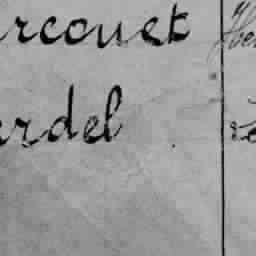 rcouet
ardel